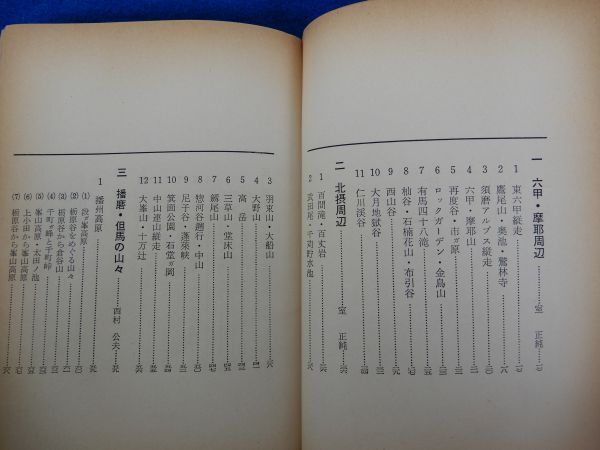 一 六甲・摩耶周辺 室 正純
1 東六甲縦走
2 鷹尾山・奥池・鷲林寺
3 須磨アルプス縦走
4 六甲・摩耶山
5 再度谷・市ガ原
6 ロックガーデン・金鳥山
7 有馬四十八滝
8 杣谷・石楠花山・布引谷
9 西山谷
10 大月地獄谷
11 仁川渓谷
二 北摂周辺 室 正純
1 百間滝・百丈岩
2 武田尾・千苅貯水池
3 羽束山・大船山
4 大野山
5 高岳
6 三草山・堂床山
7 剣尾山
8 惣河谷遡行・中山
9 尼子谷・蓬莱峡
10 箕面公園・石堂ガ岡
11 中山連山縦走
12 大峯山・十万辻
三 播磨・但馬の山々 西村 公夫
1 播州高原
(1) 段ガ峯高原
(2) 栃原谷をめぐる山々
(3) 栃原谷から倉谷山
(4) 千町ガ峰と千町峠
(5) 峯山高原・太田ノ池
(6) 上小田から峯山高原
(7) 栃原谷から峯山高原